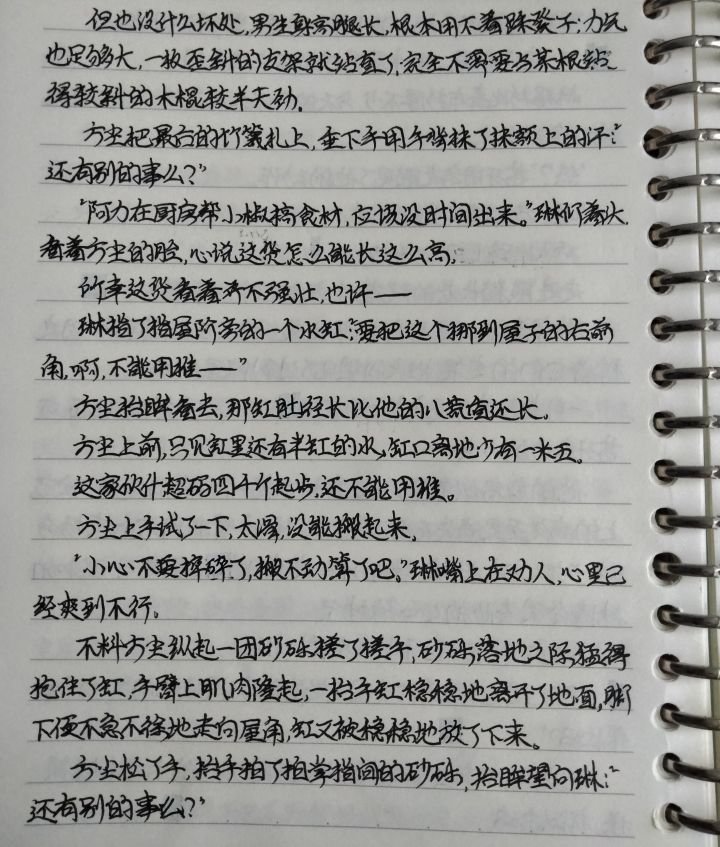 但也没什么坏处,男生身高腿长,根本用不着踩凳子;力气
也足够大,一板歪斜的支架就站直了,完全不需要与某根站
得较斜的木棍较半天劲。
方尘把最后的竹篱扎上,垂下手用手背抹了抹额上的汗:“
还有别的事么?”
“阿力在厨房帮小椒搞食材,应该没时间出来。”琳仰着头
看着方尘的脸,心说这货怎么能长这么高,
所幸这货看着并不强壮,也许——
琳指了指屋阶旁的一个水缸:“要把这个挪到屋子的右前
角,啊,不能用推——”
方尘抬眸看去,那缸肚径长比他的八荒直还长。
方尘上前,只见缸里还有半缸的水,缸口离地少有一米五。
这家伙什超码四千斤起步,还不能用推。
方尘上手试了一下,太滑,没能搬起来。
“小心不要摔碎了,搬不动算了吧。”琳嘴上在劝人,心里已
经爽到不行。
不料方尘纵起一团砂砾搓了搓手,砂砾落地之际猛得
抱住了缸,手臂上肌肉隆起,一抬手缸稳稳地离开了地面,脚
下便不急不徐地走向屋角,缸又被稳稳地放了下来。
方尘松了手,搭手拍了拍掌指间的砂砾,抬眸望向琳:“
还有别的事么?”